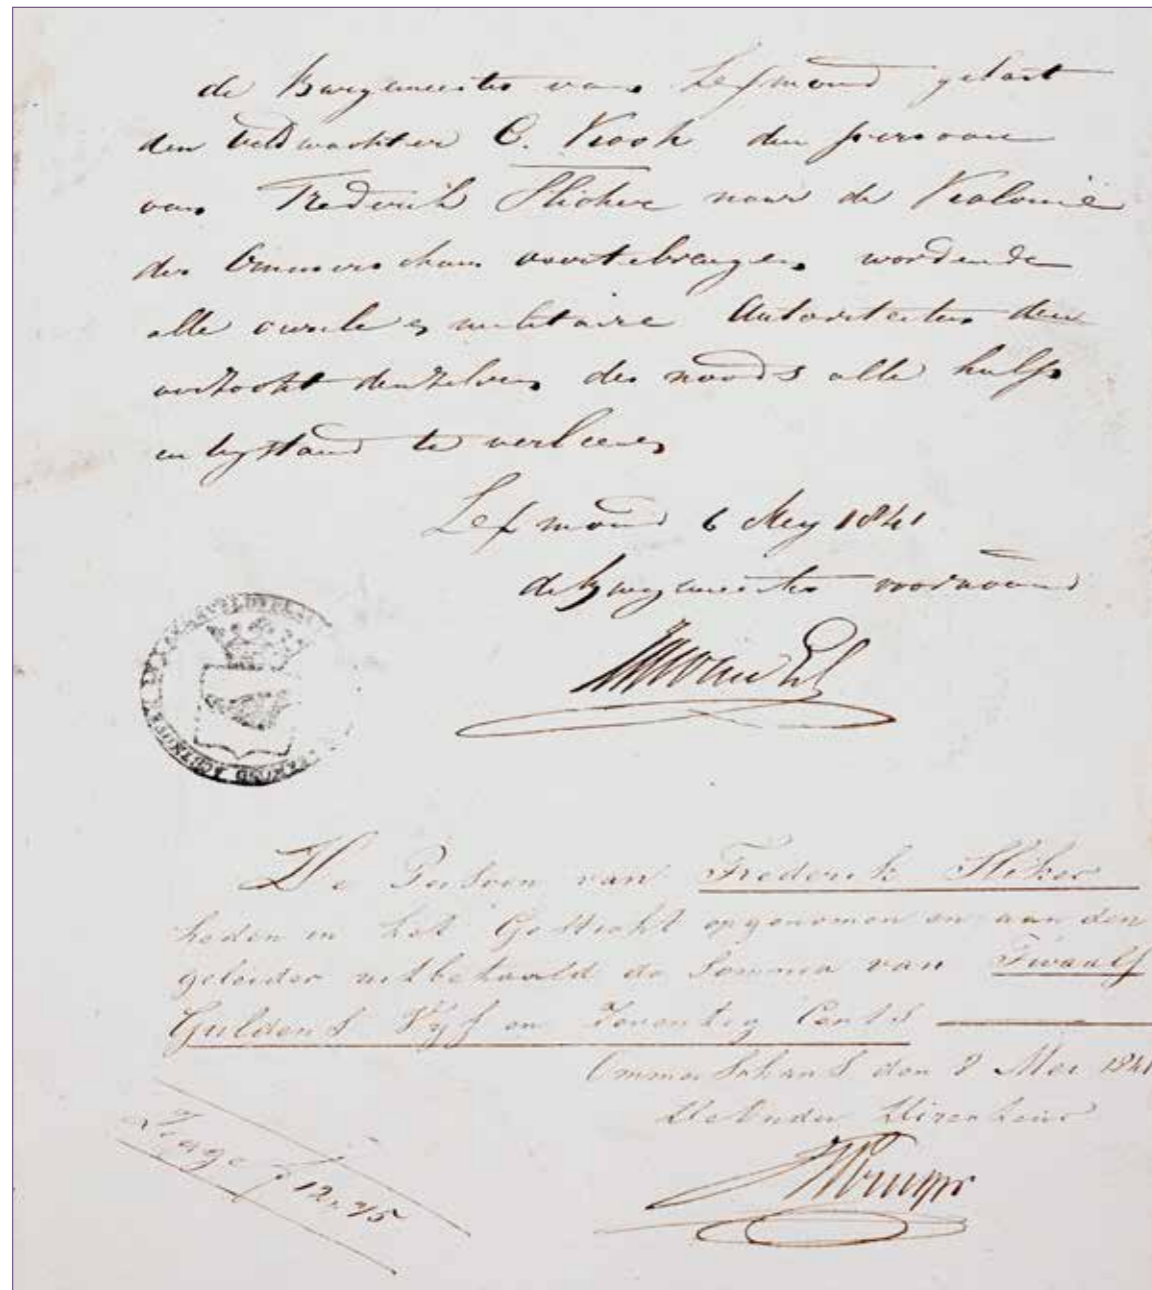 de Burgemeester van Lexmond gelast
den veldwachter C. Kook den persoon
van Frederik Slieker naar de Kolonie
der Ommerschans overtebrengen wordende
alle civiele en militaire Autoriteiten
verzocht denzelven des noods alle hulp
en bystand te verleenen
Lexmond 6 Mey 1841
de Burgemeester voornoemd
van
De Persoon van Frederik Slieker
heden in het Gesticht opgenomen en aan den
geleider uitbetaald de Somma van Twaalf
Guldens Vyf en Zeventig Cents
Ommerschans den 8 Mei 1841
De Onder Directeur
Zegge f 12.75